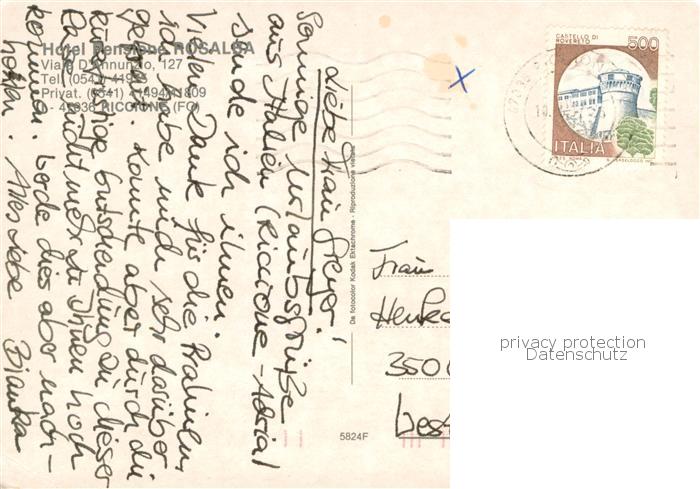 Hotel Pensione ROSALBA
Viale D'Annunzio, 127
Tel. (0541)
Privat. (0541) 41494/41809
- 47036 RICCIONE (FO)
Liebe Frau
Sonnige Urlaubsgrüße
aus Italien (Riccione - Adria)
sende ich ihnen.
Vielen Dank für die Pralinen,
ich habe mich sehr darüber
gefreut. Konnte aber durch die
kurzfristige Entscheidung zu dieser
nicht mehr zu Ihnen hoch
kommen. Werde dies aber nach-
holen. Alles Liebe Bianka
Da fotocolor Kodak Ektachrome - Riproduzione vietata
5824F
CASTELLO DI
ROVERETO
500
ITALIA
Frau
Henke
350
West
privacy protection
Datenschutz